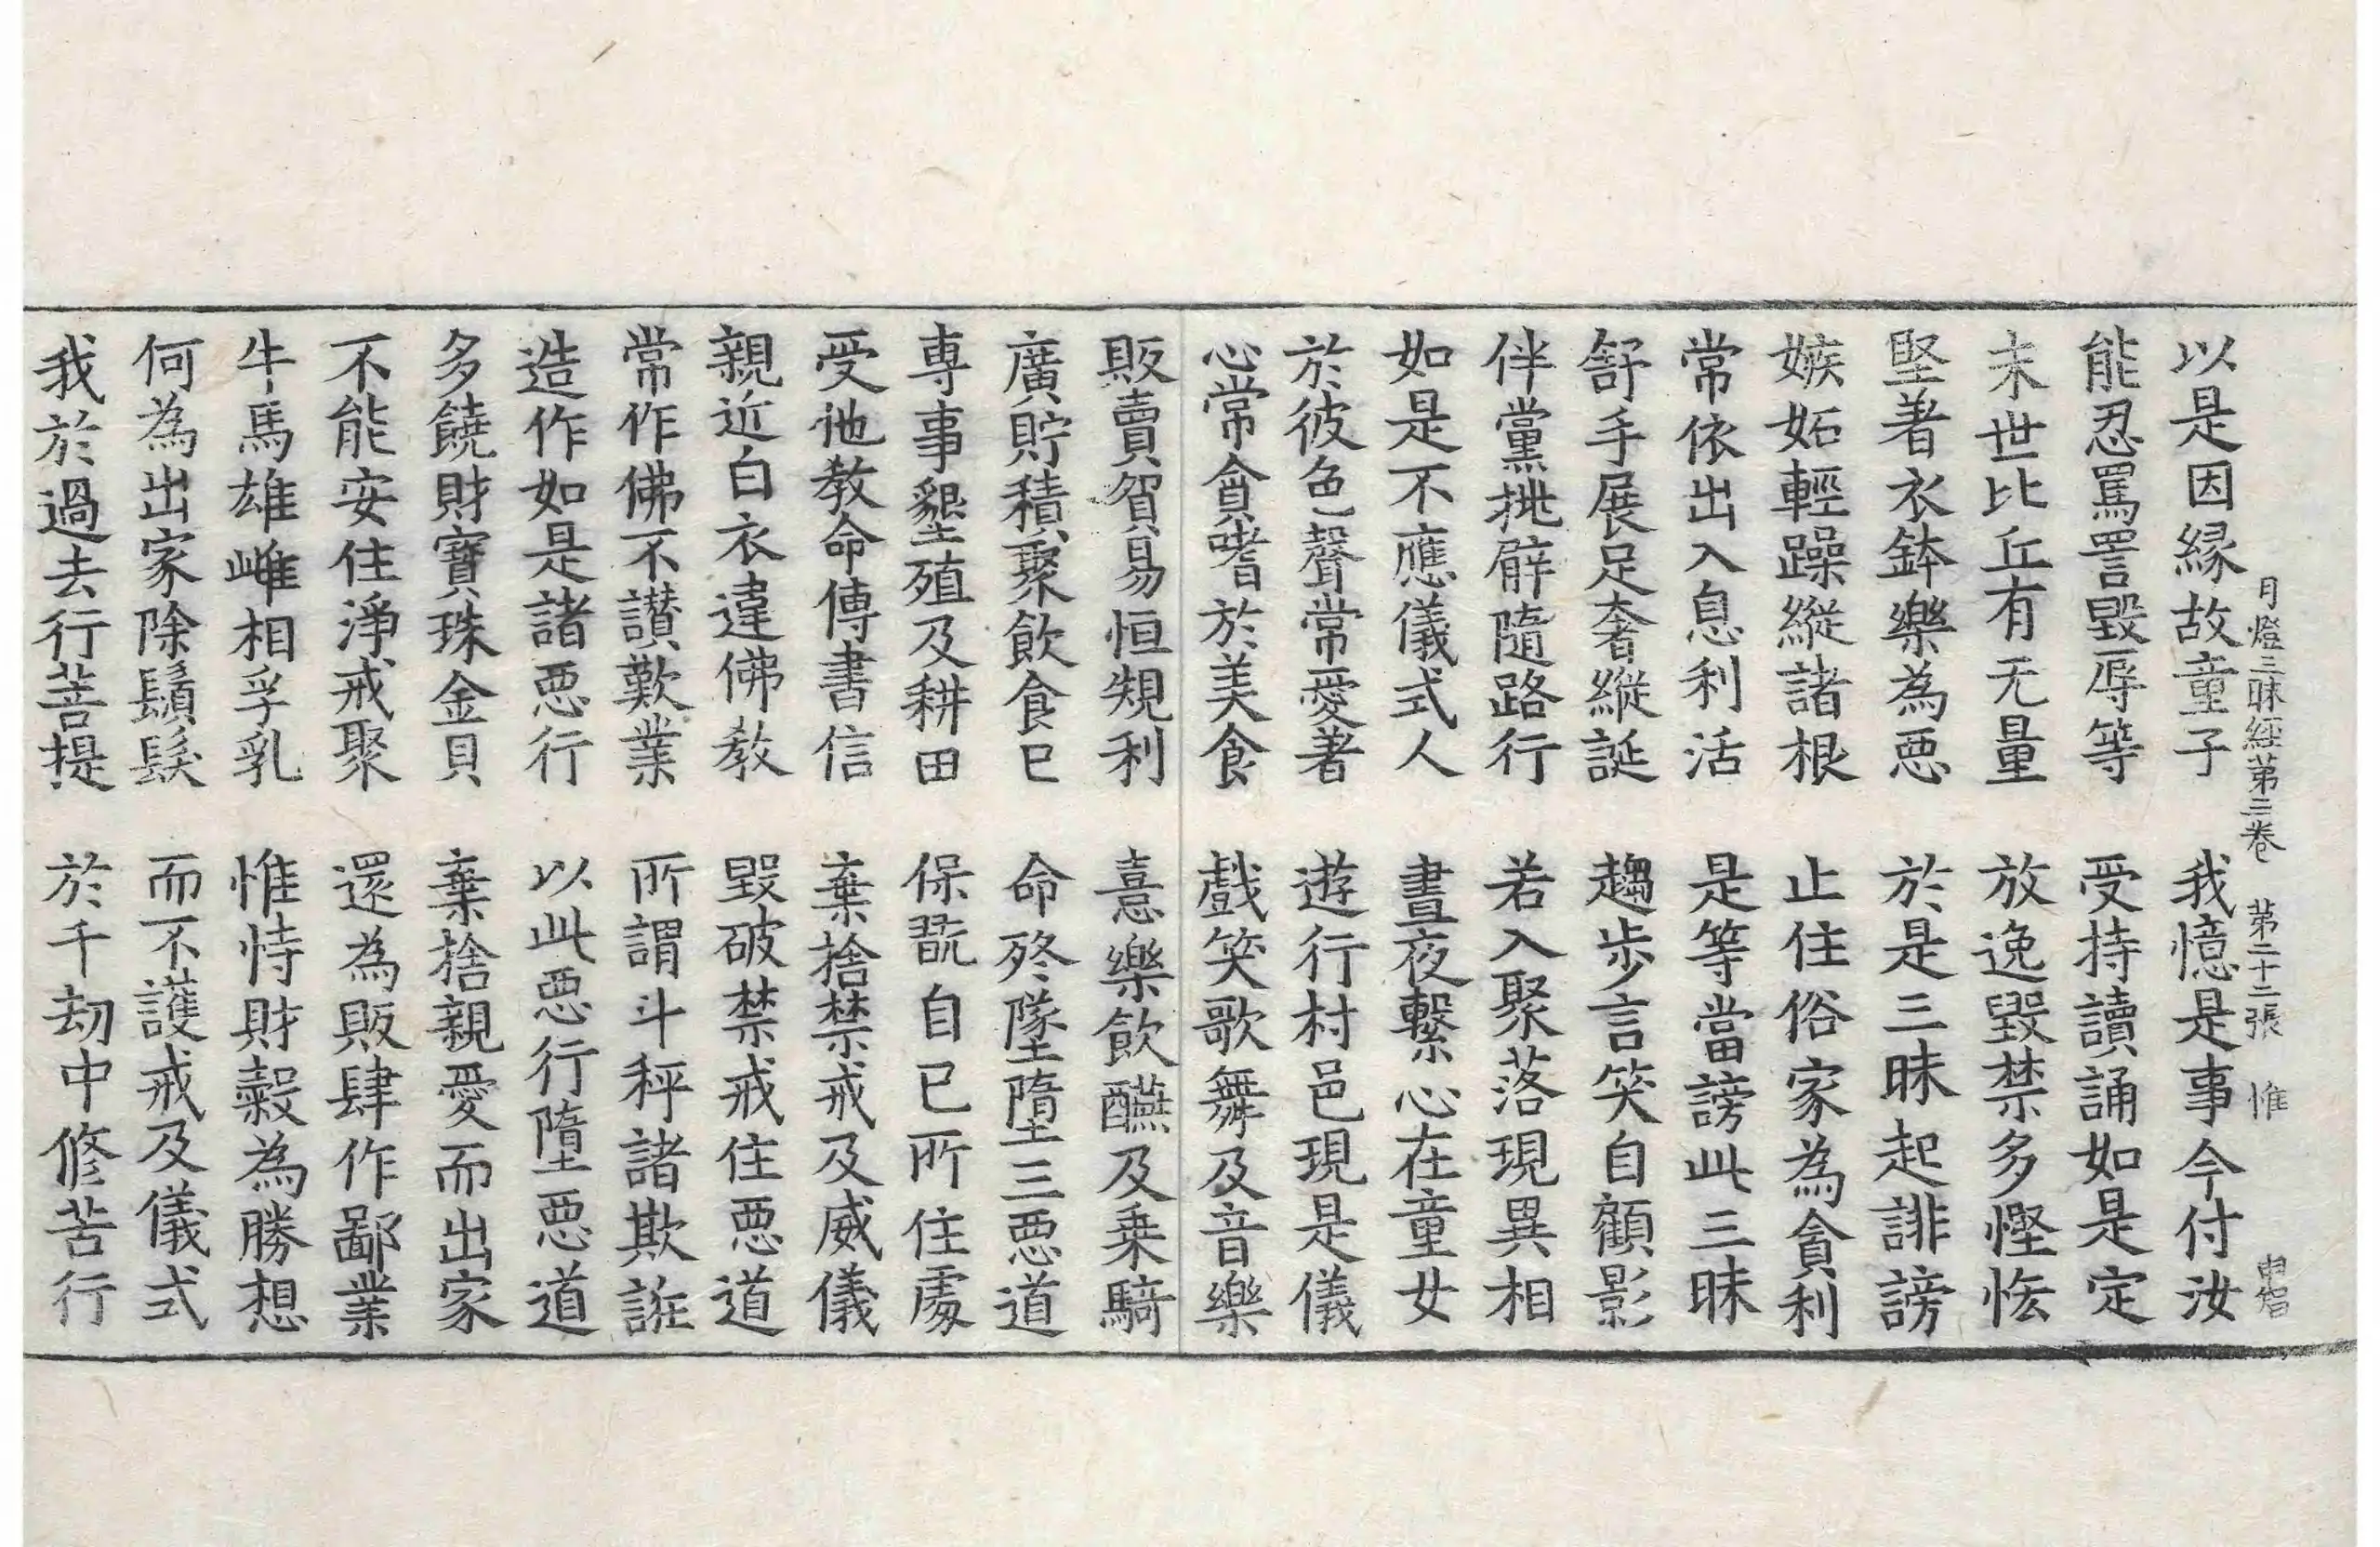 月燈三昧經第三卷　第二十二張　惟　申智
以是因縁故童子　我憶是事今付汝
能忍罵詈毀辱等　受持讀誦如是定
末世比丘有无量　放逸毀禁多慳悋
堅著衣鉢樂為惡　於是三昧起誹謗
嫉妬輕躁縱諸根　止住俗家為貪利
常依出入息利活　是等當謗此三昧
舒手展足奢縱誕　趨步言笑自顧影
伴黨挑髀隨路行　若入聚落現異相
如是不應儀式人　晝夜繫心在童女
於彼色聲常愛著　遊行村邑現是儀
心常貪嗜於美食　戲笑歌舞及音樂
販賣貿易恒規利　憙樂飲醼及乗騎
廣貯積聚飲食已　命終墜墮三惡道
專事墾殖及耕田　保翫自已所住處
受他教命傳書信　棄捨禁戒及威儀
親近白衣違佛教　毀破禁戒住惡道
常作佛不讃歎業　所謂斗秤諸欺誑
造作如是諸惡行　以此惡行墮惡道
多饒財寶珠金貝　棄捨親愛而出家
不能安住淨戒聚　還為販肆作鄙業
牛馬雄雌相孚乳　惟恃財穀為勝想
何為出家除鬚髮　而不護戒及儀式
我於過去行菩提　於千劫中修苦行